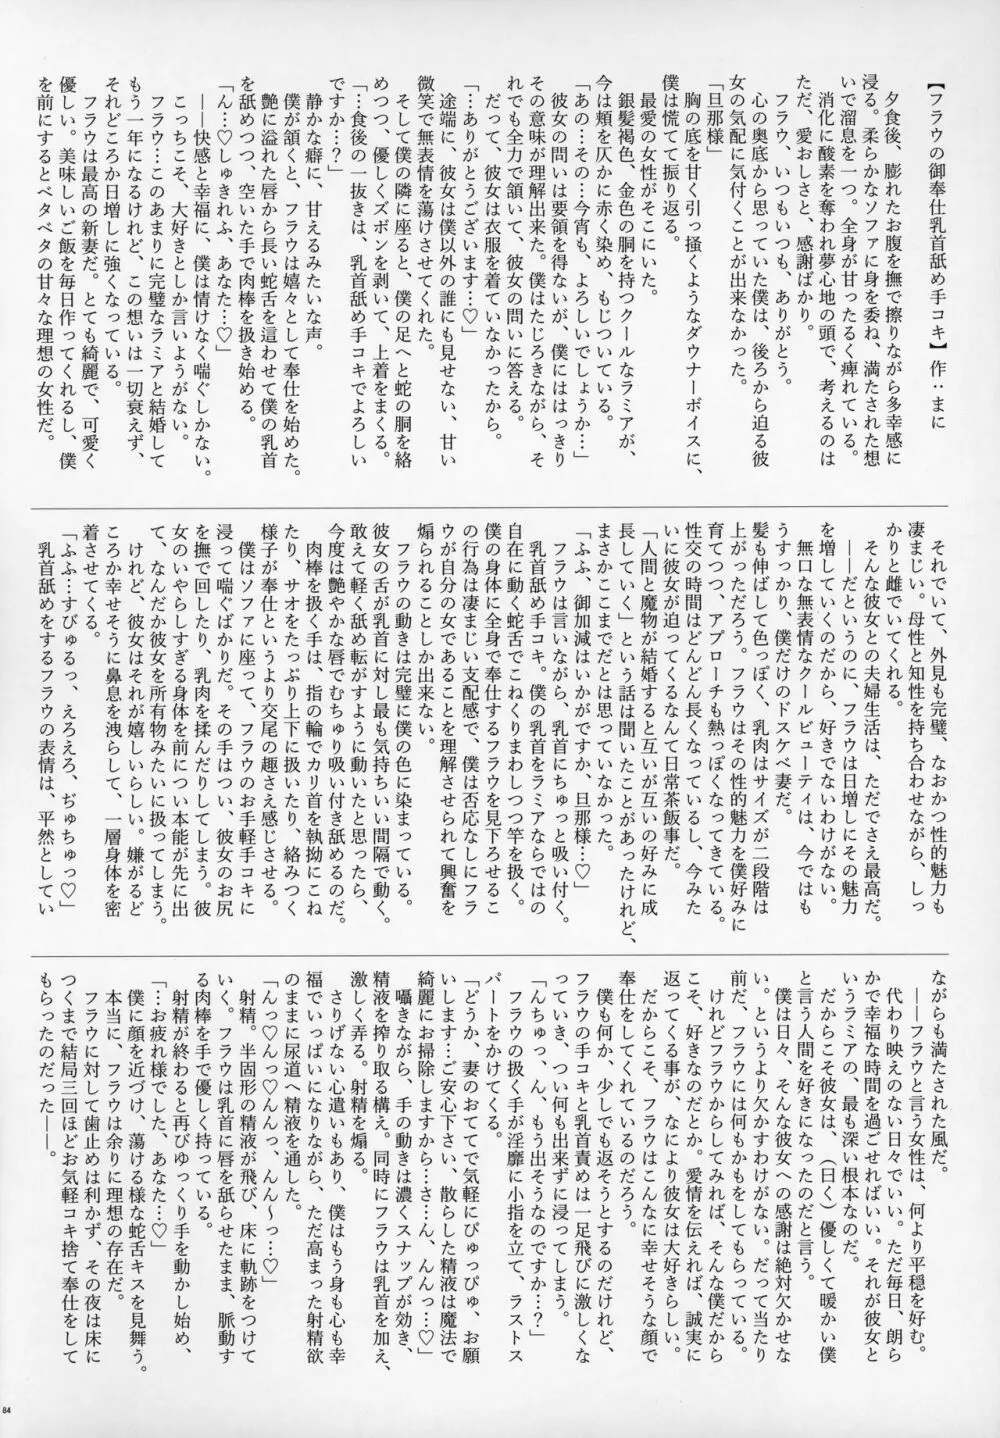 【フラウの御奉仕乳首舐め手コキ】作：まに
夕食後、膨れたお腹を撫で擦りながら多幸感に
浸る。柔らかなソファに身を委ね、満たされた想
いで溜息を一つ。全身が甘ったるく痺れている。
消化に酸素を奪われ夢心地の頭で、考えるのは
ただ、愛おしさと、感謝ばかり。
フラウ、いつもいつも、ありがとう。
心の奥底から思っていた僕は、後ろから迫る彼
女の気配に気付くことが出来なかった。
「旦那様」
胸の底を甘く引っ掻くようなダウナーボイスに、
僕は慌てて振り返る。
最愛の女性がそこにいた。
銀髪褐色、金色の胴を持つクールなラミアが、
今は頬を仄かに赤く染め、もじついている。
「あの…その…今宵も、よろしいでしょうか…」
彼女の問いは要領を得ないが、僕にははっきり
その意味が理解出来た。僕はたじろぎながら、そ
れでも全力で頷いて、彼女の問いに答える。
だって、彼女は衣服を着ていなかったから。
「…ありがとうございます…♡」
途端に、彼女は僕以外の誰にも見せない、甘い
微笑で無表情を蕩けさせてくれた。
そして僕の隣に座ると、僕の足へと蛇の胴を絡
めつつ、優しくズボンを剥いて、上着をまくる。
「…食後の一抜きは、乳首舐め手コキでよろしい
ですか…？」
静かな癖に、甘えるみたいな声。
僕が頷くと、フラウは嬉々として奉仕を始めた。
艶に溢れた唇から長い蛇舌を這わせて僕の乳首
を舐めつつ、空いた手で肉棒を扱き始める。
「ん…♡しゅきれふ、あなた…♡」
――快感と幸福に、僕は情けなく喘ぐしかない。
こっちこそ、大好きとしか言いようがない。
フラウ…このあまりに完璧なラミアと結婚して
もう一年になるけれど、この想いは一切衰えず、
それどころか日増しに強くなっている。
フラウは最高の新妻だ。とても綺麗で、可愛く
優しい。美味しいご飯を毎日作ってくれるし、僕
を前にするとベタベタの甘々な理想の女性だ。
それでいて、外見も完璧、なおかつ性的魅力も
凄まじい。母性と知性を持ち合わせながら、しっ
かりと雌でいてくれる。
そんな彼女との夫婦生活は、ただでさえ最高だ。
――だというのに、フラウは日増しにその魅力
を増していくのだから、好きでないわけがない。
無口な無表情なクールビューティは、今ではも
うすっかり、僕だけのドスケベ妻だ。
髪も伸ばして色っぽく、乳肉はサイズが二段階は
上がっただろう。フラウはその性的魅力を僕好みに
育てつつ、アプローチも熱っぽくなってきている。
性交の時間はどんどん長くなっているし、今みた
いに彼女が迫ってくるなんて日常茶飯事だ。
「人間と魔物が結婚すると互いが互いの好みに成
長していく」という話は聞いたことがあったけれど、
まさかここまでだとは思っていなかった。
「ふふ、御加減はいかがですか、旦那様…♡」
フラウは言いながら、乳首にちゅっと吸い付く。
乳首舐め手コキ。僕の乳首をラミアならではの
自在に動く蛇舌でこねくりまわしつつ竿を扱く。
僕の身体に全身で奉仕するフラウを見下ろせるこ
の行為は凄まじい支配感で、僕は否応なしにフラ
ウが自分の女であることを理解させられて興奮を
煽られることとしか出来ない。
フラウの動きは完璧に僕の色に染まっている。
彼女の舌が乳首に対し最も気持ちいい間隔で動く。
敢えて軽く舐め転がすように動いたと思ったら、
今度は艶やかな唇でむちゅり吸い付き舐めるのだ。
肉棒を扱く手は、指の輪でカリ首を執拗にこね
たり、サオをたっぷり上下に扱いたり、絡みつく
様子が奉仕というより交尾の趣さえ感じさせる。
僕はソファに座って、フラウのお手軽手コキに
浸って喘ぐばかりだ。その手はつい、彼女のお尻
を撫で回したり、乳肉を揉んだりしてしまう。彼
女のいやらしすぎる身体を前につい本能が先に出
て、なんだか彼女を所有物みたいに扱ってしまう。
けれど、彼女はそれが嬉しいらしい。嫌がるど
ころか幸せそうに鼻息を洩らして、一層身体を密
着させてくる。
「ふふ…すびゅるっ、えろえろ、ぢゅちゅっ♡」
乳首舐めをするフラウの表情は、平然としてい
ながらも満たされた風だ。
――フラウと言う女性は、何より平穏を好む。
代わり映えのない日々でいい。ただ毎日、朗ら
かで幸福な時間を過ごせればいい。それが彼女と
いうラミアの、最も深い根本なのだ。
だからこそ彼女は、（曰く）優しくて暖かい僕
と言う人間を好きになったのだと言う。
僕は日々、そんな彼女への感謝は絶対欠かせな
い。というより欠かすわけがない。だって当たり
前だ、フラウには何もかもをしてもらっている。
けれどフラウからしてみれば、そんな僕だから
こそ、好きなのだとか。愛情を伝えれば、誠実に
返ってくる事が、なにより彼女は大好きらしい。
だからこそ、フラウはこんなに幸せそうな顔で
奉仕をしてくれているのだろう。
僕も何か、少しでも返そうとするのだけれど、
フラウの手コキと乳首責めは一足飛びに激しくな
っていき、つい何も出来ずに浸ってしまう。
「んちゅっ、ん、もう出そうなのですか…？」
フラウの扱く手が淫靡に小指を立て、ラストス
パートをかけてくる。
「どうか、妻のおててで気軽にぴゅっぴゅ、お願
いします…ご安心下さい、散らした精液は魔法で
綺麗にお掃除しますから…さ…ん、んんっ…♡」
囁きながら、手の動きは濃くスナップが効き、
精液を搾り取る構え。同時にフラウは乳首を加え、
激しく弄る。射精を煽る。
さりげない心遣いもあり、僕はもう身も心も幸
福でいっぱいになりながら、ただ高まった射精欲
のままに尿道へ精液を通した。
「んっ♡んっ♡んんっ、んん～っ…♡」
射精。半固形の精液が飛び、床に軌跡をつけて
いく。フラウは乳首に唇を舐らせたまま、脈動す
る肉棒を手で優しく持っている。
射精が終わると再びゆっくり手を動かし始め、
「…お疲れ様でした、あなた…♡」
僕に顔を近づけ、蕩ける様な蛇舌キスを見舞う。
本当に、フラウは余りに理想の存在だ。
フラウに対して歯止めは利かず、その夜は床に
つくまで結局三回ほどお気軽コキ捨て奉仕をして
もらったのだった――。
84